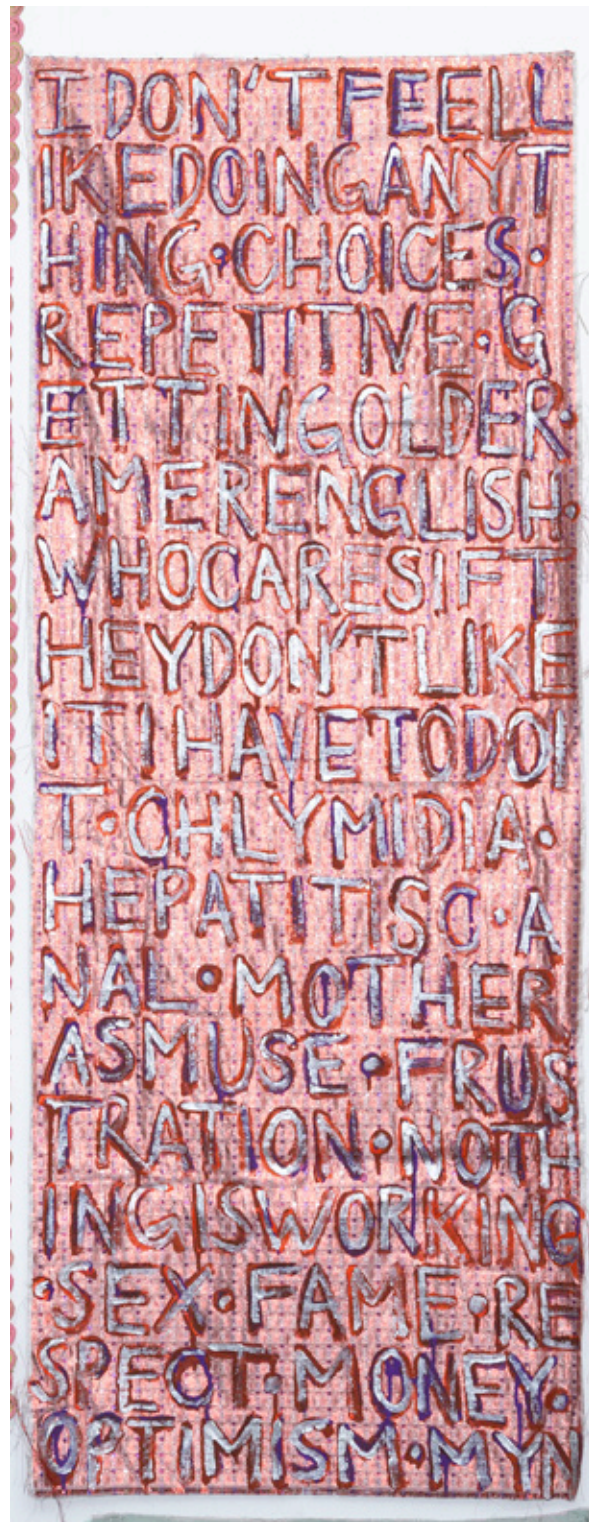 I DON'T FEEL L
IKEDOINGANYT
HING•CHOICES•
REPETITIVE•G
ETTINGOLDER•
AMERENGLISH•
WHOCARESIFT
HEYDON'TLIKE
ITIHAVETODOI
T•CHLYMIDIA•
HEPATITISC•A
NAL•MOTHER
ASMUSE•FRUS
TRATION•NOTH
INGISWORKING
•SEX•FAME•RE
SPECT•MONEY•
OPTIMISM•MYN